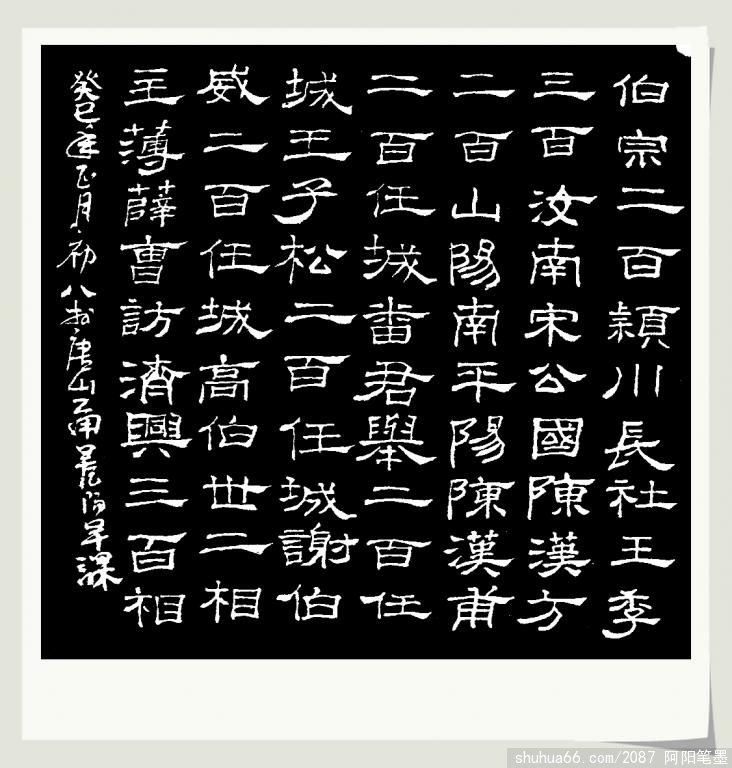 伯宗二百頴川長社王季
三百汝南宋公國陳漢方
二百山陽南平陽陳漢甫
二百任城番君舉二百任
城王子松二百任城謝伯
威二百任城高伯世二相
主薄薛曹訪濟興三百相
癸巳年正月初八於唐山早課
shuhua66.com/2087 阿阳笔墨